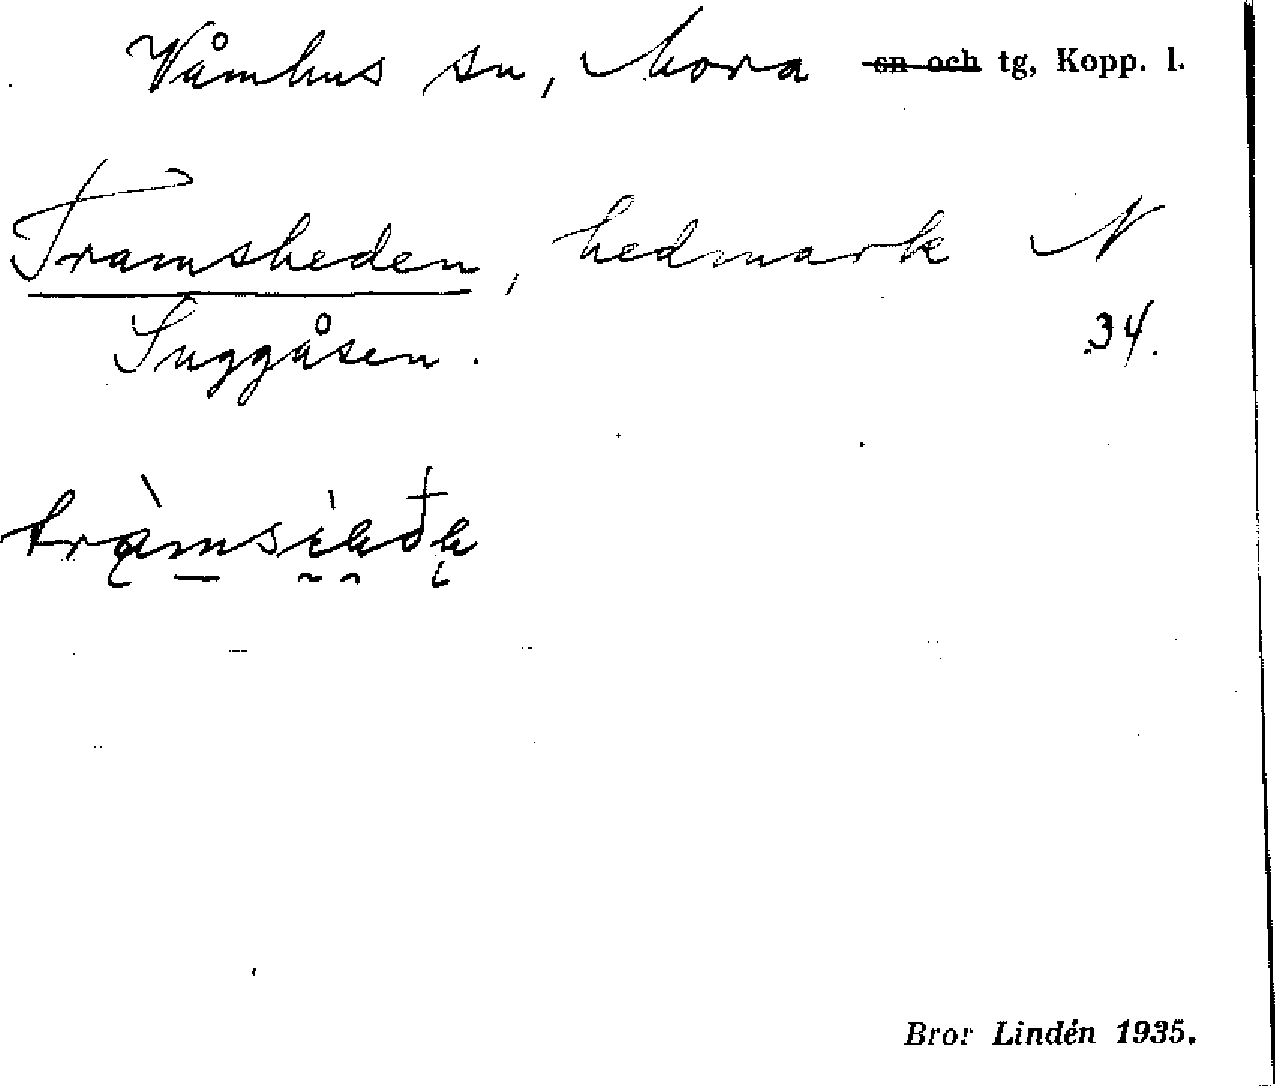 Våmhus sn, Mora sn och tg, Kopp. l.
Tramsheden, hedmark N
Suggåsen. 34.
Bror Lindén 1935.